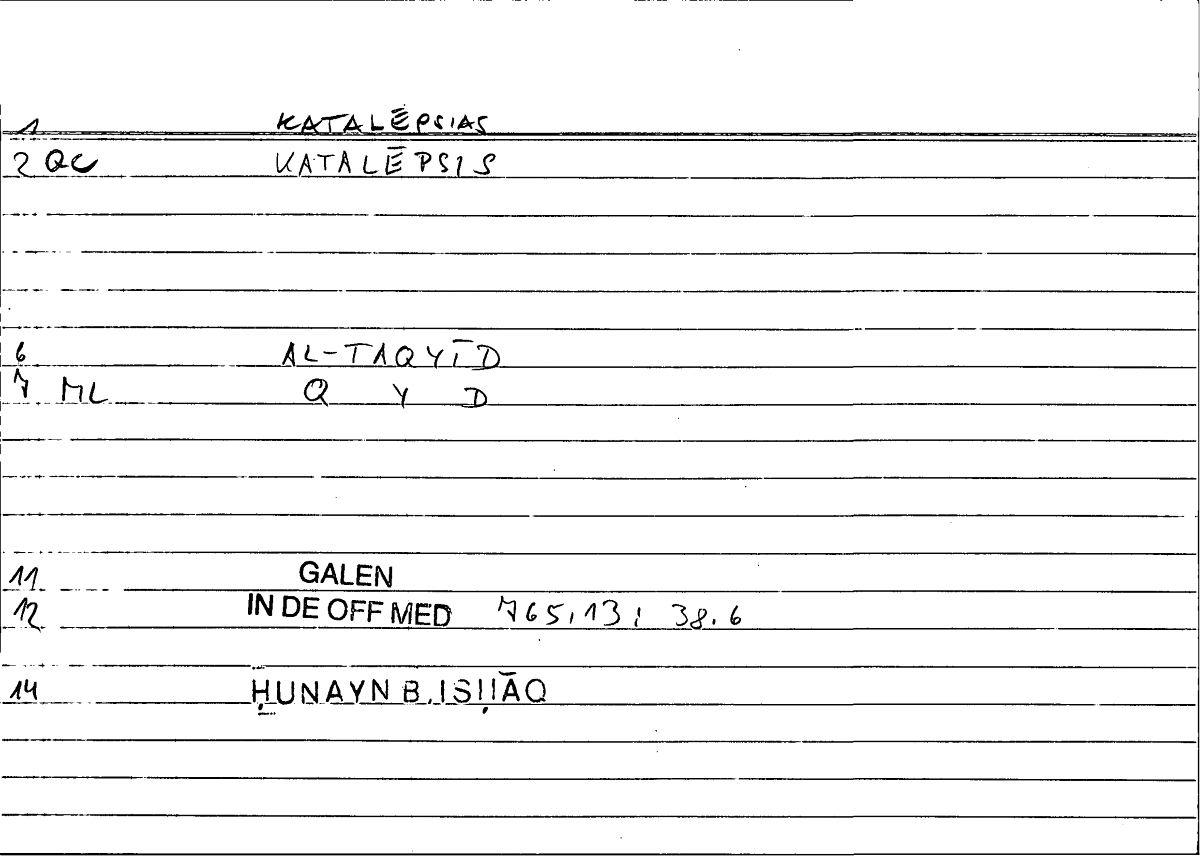 1 KATALĒPSIAS
2 QC KATALĒPSIS
6 AL-TAQYĪD
7 ML Q Y D
11 GALEN
12 IN DE OFF MED 765,13; 38.6
14 ḤUNAYN B. ISḤĀQ